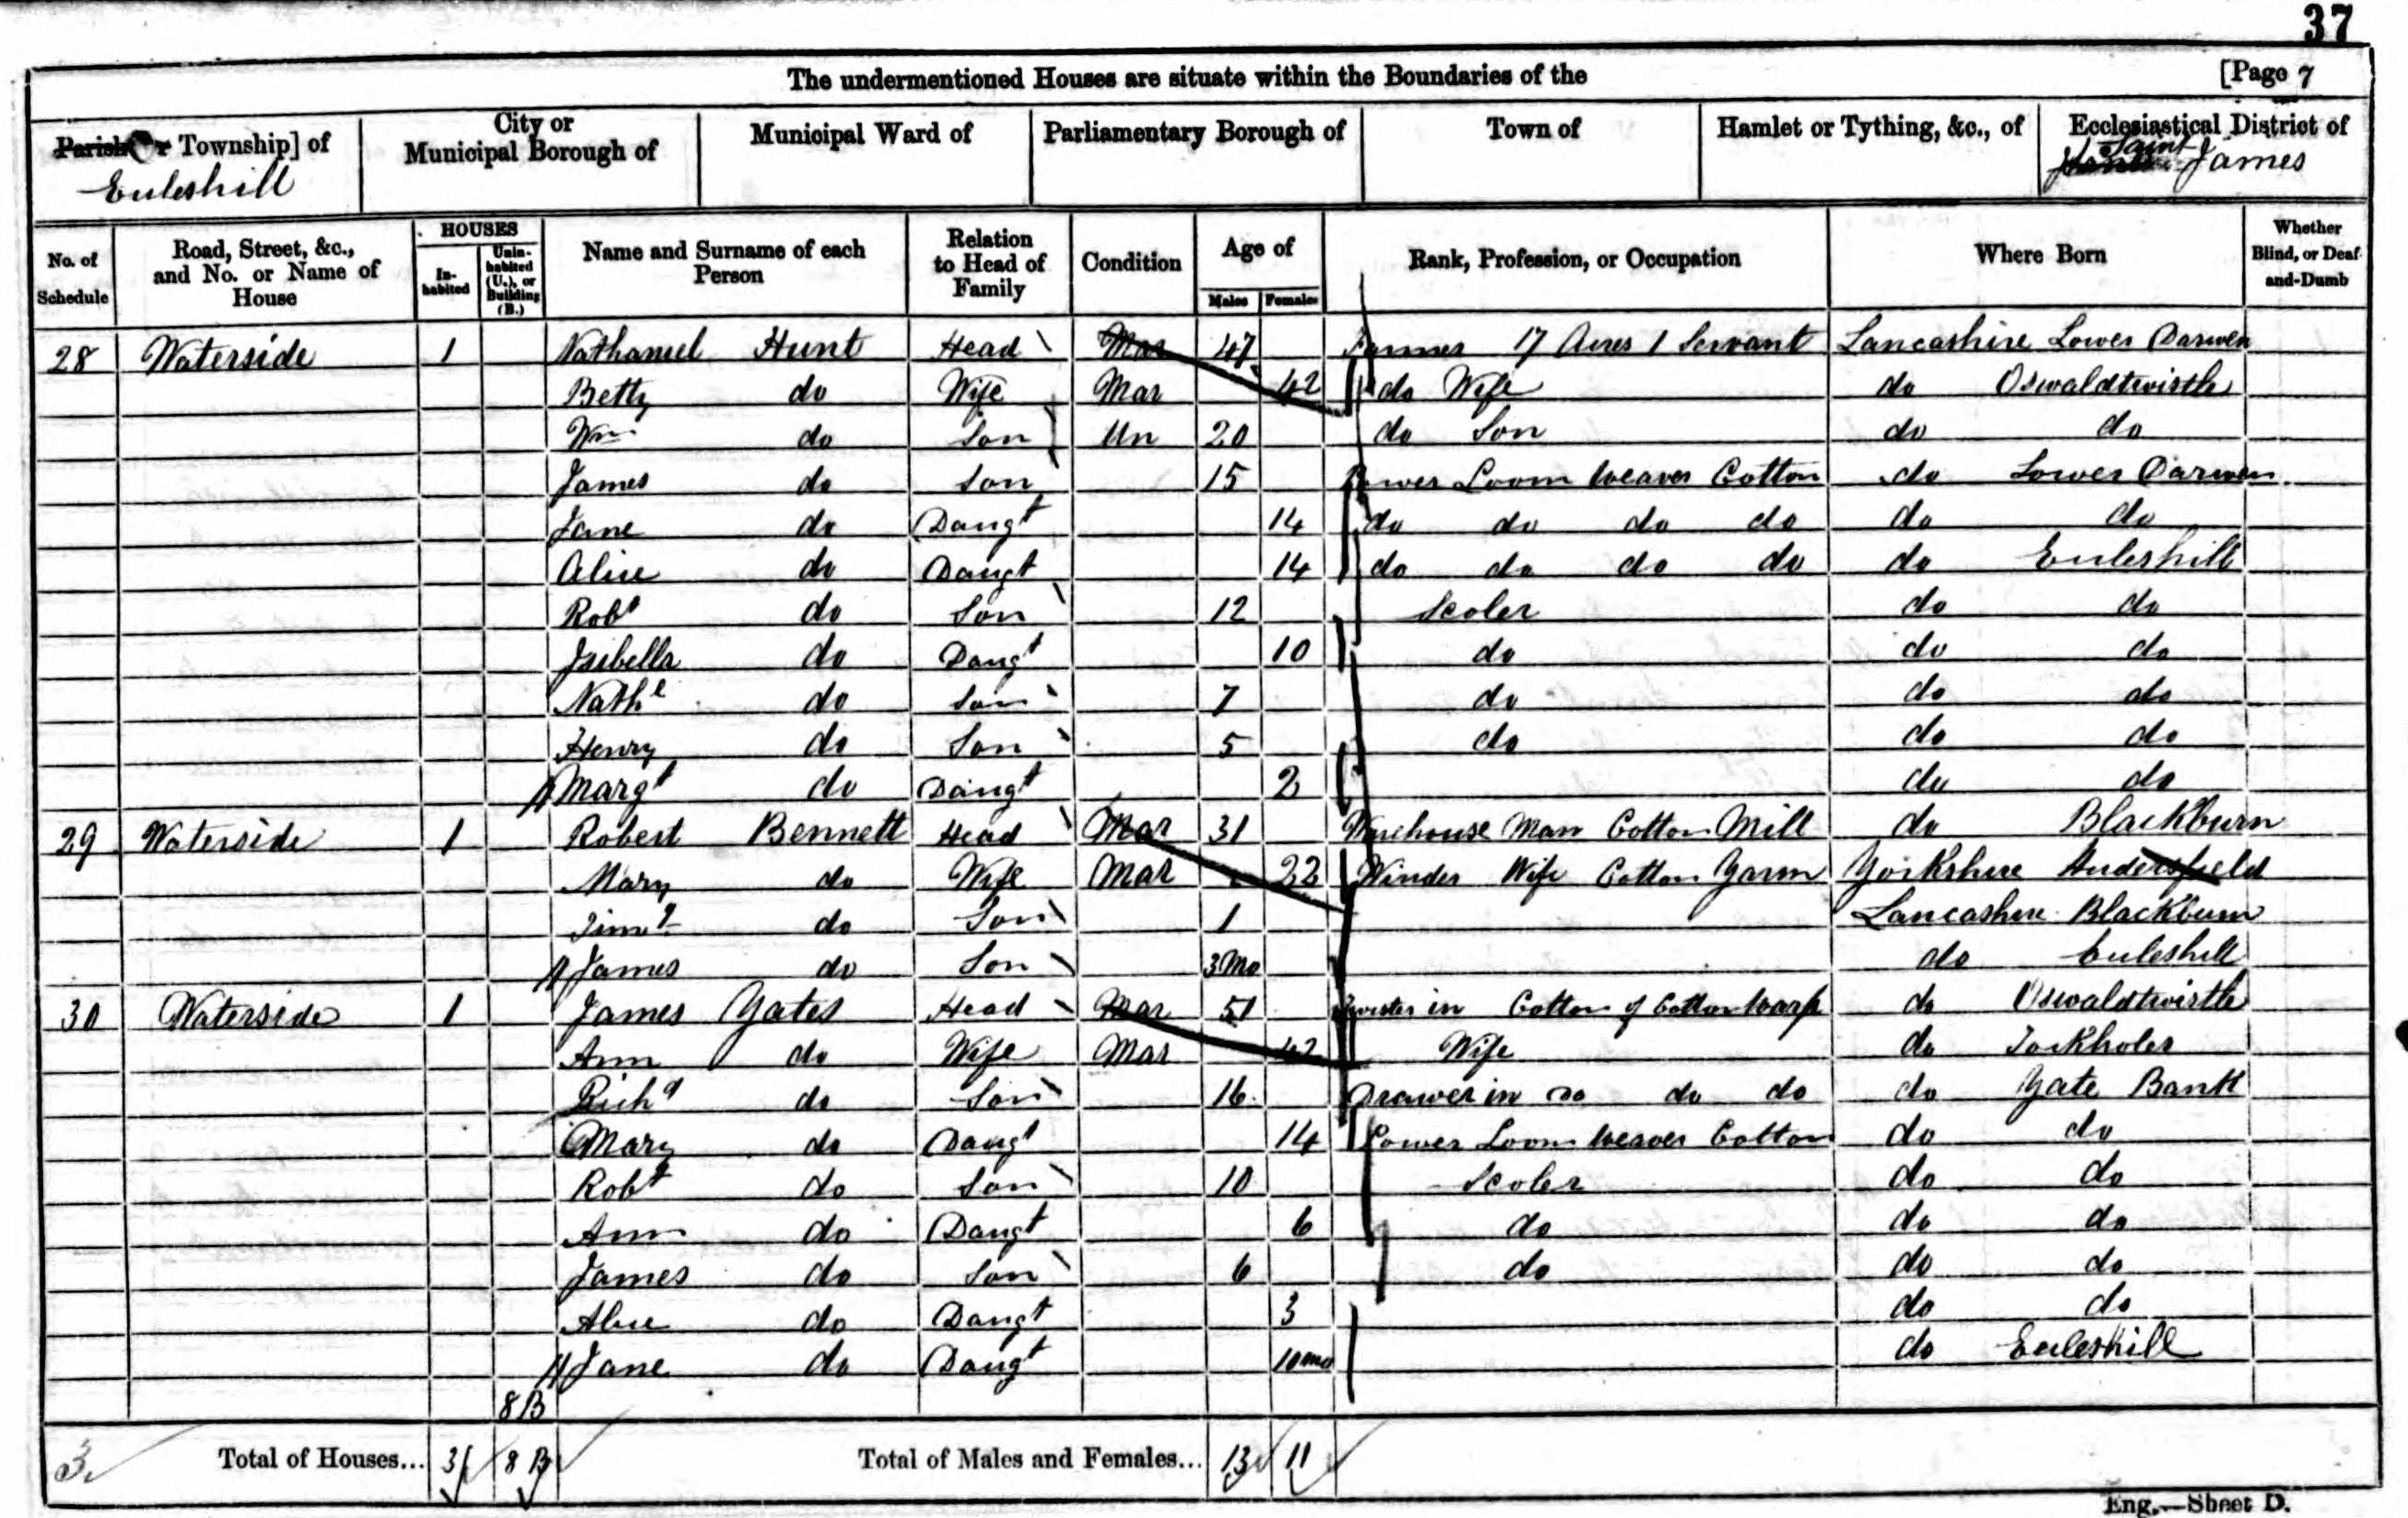 37
The undermentioned Houses are situate within the Boundaries of the [Page 7
Parish or Township] of City or Municipal Borough of Municipal Ward of Parliamentary Borough of Town of Hamlet or Tything, &c., of Ecclesiastical District of
Euleshill Saint James
No. of Schedule Road, Street, &c., and No. or Name of House HOUSES Inhabited Uninhabited (U.), or Building (B.) Name and Surname of each Person Relation to Head of Family Condition Age of Males Females Rank, Profession, or Occupation Where Born Whether Blind, or Deaf-and-Dumb
28 Waterside 1 Nathaniel Hunt Head Mar 47 Farmer 17 Acres 1 Servant Lancashire Lower Darwen
Betty do Wife Mar 42 do Wife do Oswaldtwistle
Wm do Son Un 20 do Son do do
James do Son 15 Power Loom Weaver Cotton do Lower Darwen
Jane do Daugt 14 do do do do do do
Alice do Daugt 14 do do do do do Euleshill
Robt do Son 12 Scoler do do
Isibella do Daugt 10 do do do
Nathl do Son 7 do do do
Henry do Son 5 do do do
Margt do Daugt 2 do do
29 Waterside 1 Robert Bennett Head Mar 31 Warehouse Man Cotton Mill do Blackburn
Mary do Wife Mar 22 Winder Wife Cotton Yarn Yorkshire Hudersfield
Timy do Son 1 Lancashire Blackburn
James do Son 3 Mo do Euleshill
30 Waterside 1 James Yates Head Mar 51 Twister in Cotton of Cotton Warp do Oswaldtwistle
Ann do Wife Mar 42 Wife do Tockholes
Richd do Son 16 Drawer in do do do do Yate Bank
Mary do Daugt 14 Power Loom Weaver Cotton do do
Robt do Son 10 Scoler do do
Ann do Daugt 6 do do do
James do Son 6 do do do
Alice do Daugt 3 do do
Jane do Daugt 10 mo do Euleshill
8 B
3 Total of Houses... 3 8 B Total of Males and Females... 13 11
Eng.—Sheet D.